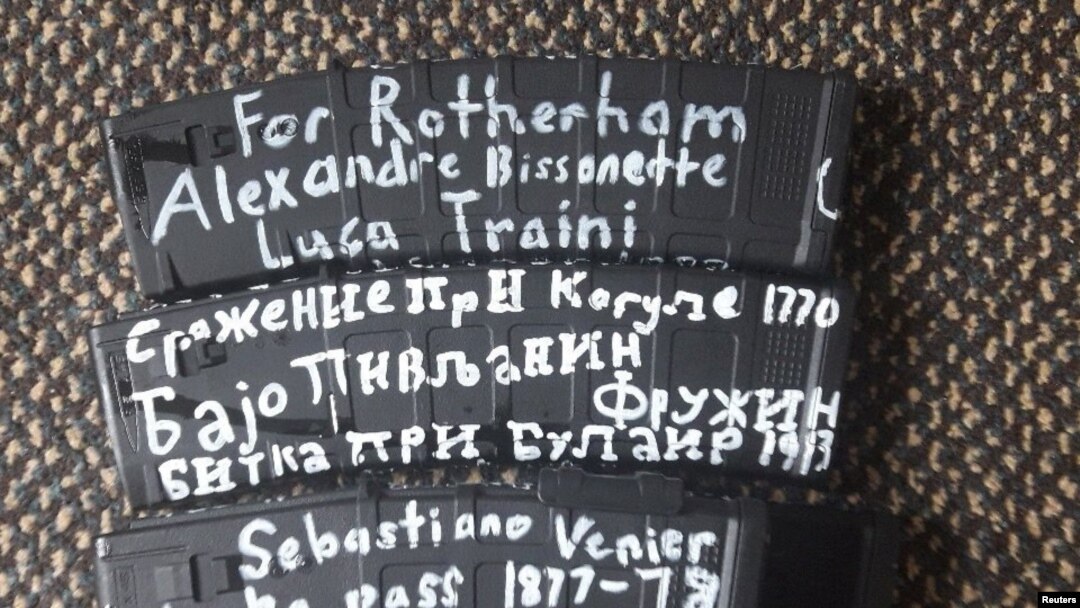 For Rotherham
Alexandre Bissonette
Luca Traini
Сражение при Кагуле 1770
Бајо Пивљанин
Фружин
Битка при Булаир 1913
Sebastiano Venier
pass 1877-78
Reuters